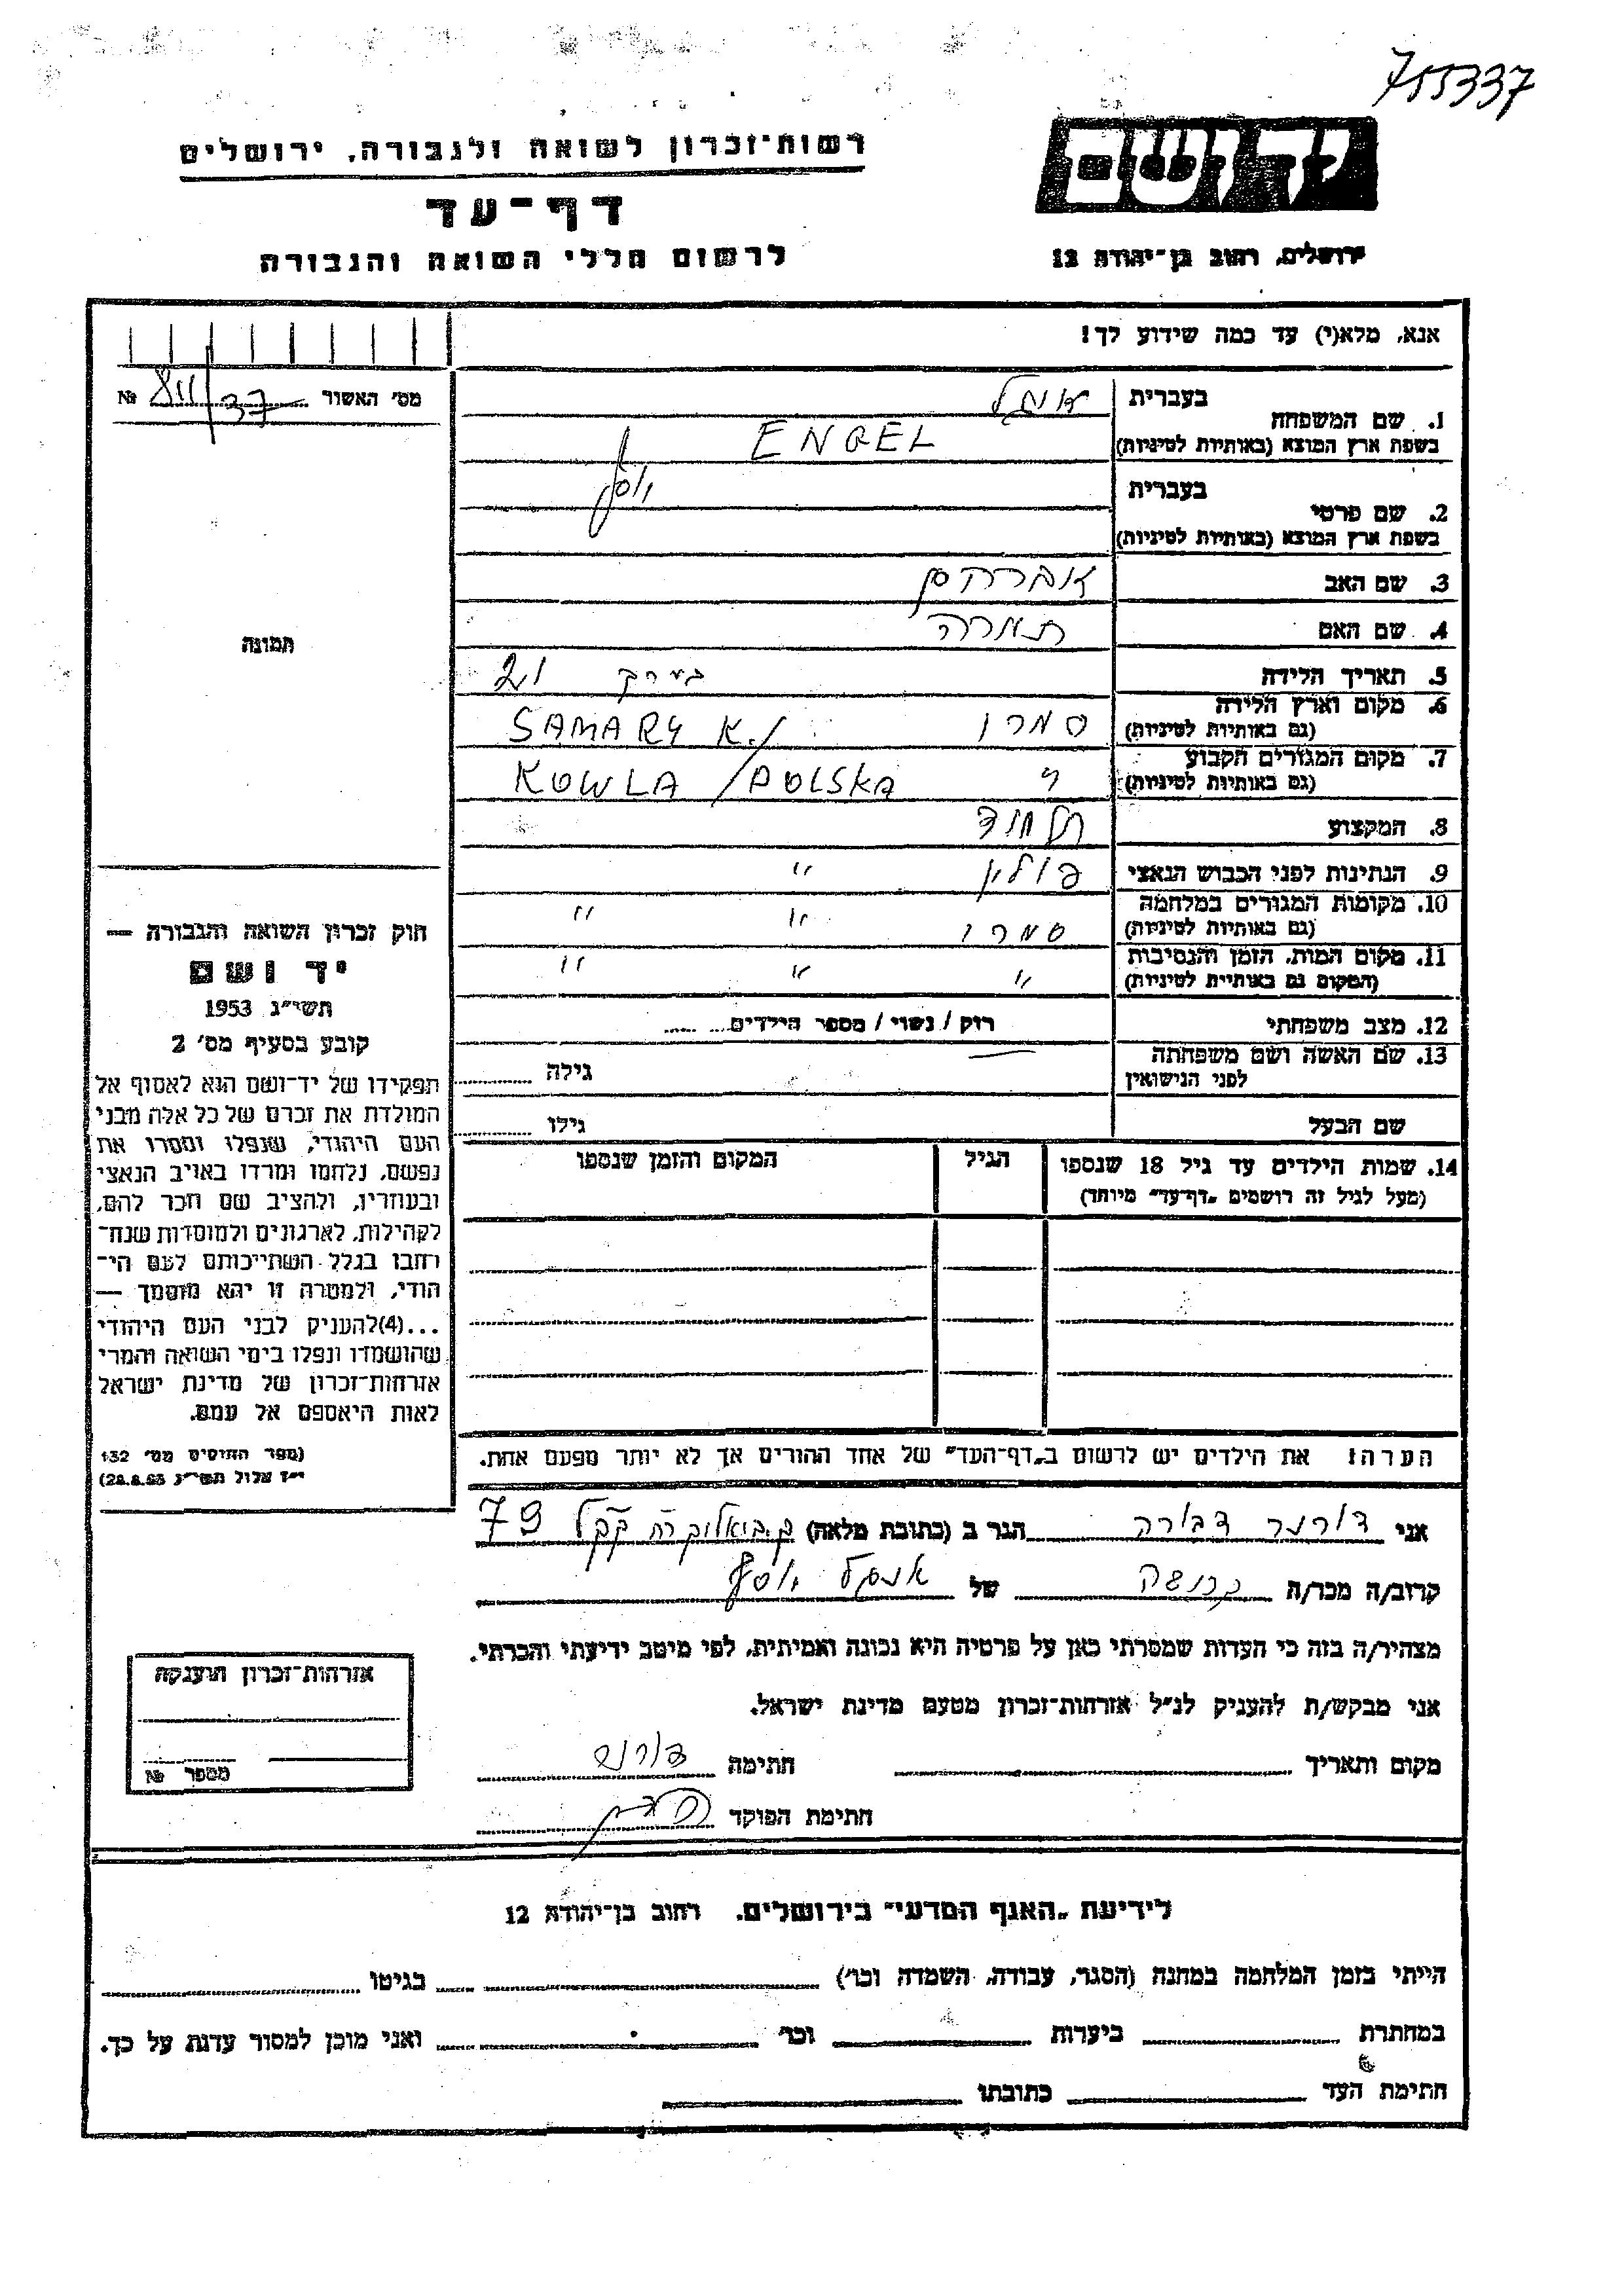 755337
יד ושם
רשות-זכרון לשואה ולגבורה, ירושלים
דף-עד
לרשום חללי השואה והגבורה
ירושלים, רחוב בן-יהודה 12
אנא, מלא(י) עד כמה שידוע לך!
מס׳ האשור № 37
1. שם המשפחה
בעברית
בשפת ארץ המוצא (באותיות לטיניות) ENGEL
2. שם פרטי
בעברית יוסף
בשפת ארץ המוצא (באותיות לטיניות)
3. שם האב אברהם
4. שם האם תמרה
5. תאריך הלידה בערך 21
6. מקום וארץ הלידה
(גם באותיות לטיניות) סמרי SAMARY K./
7. מקום המגורים הקבוע
(גם באותיות לטיניות) " KOWLA / POLSKA
8. המקצוע תלמיד
9. הנתינות לפני הכבוש הנאצי פולין "
10. מקומות המגורים במלחמה
(גם באותיות לטיניות) סמרי " "
11. מקום המות, הזמן והנסיבות
(המקום גם באותיות לטיניות) " " "
12. מצב משפחתי רוק / נשוי / מספר הילדים
13. שם האשה ושם משפחתה
לפני הנישואין גילה
שם הבעל גילו
14. שמות הילדים עד גיל 18 שנספו
(מעל לגיל זה רושמים „דף-עד" מיוחד)
הגיל
המקום והזמן שנספו
הערה: את הילדים יש לרשום ב„דף-העד" של אחד ההורים אך לא יותר מפעם אחת.
תמונה
חוק זכרון השואה והגבורה —
יד ושם
תשי״ג 1953
קובע בסעיף מס׳ 2
תפקידו של יד-ושם הוא לאסוף אל
המולדת את זכרם של כל אלה מבני
העם היהודי, שנפלו ומסרו את
נפשם, נלחמו ומרדו באויב הנאצי
ובעוזריו, ולהציב שם וזכר להם,
לקהילות, לארגונים ולמוסדות שנח-
רבו בגלל השתייכותם לעם הי-
הודי, ולמטרה זו יהא מוסמך —
...(4)להעניק לבני העם היהודי
שהושמדו ונפלו בימי השואה והמרי
אזרחות-זכרון של מדינת ישראל
לאות היאספם אל עמם.
(ספר החוקים מס׳ 132
י״ז אלול תשי״ג 28.8.53)
אני דורנר דבורה הגר ב (כתובת מלאה) ק. ביאליק רח קקל 79
קרוב/ה מכר/ה קרובה של אנגל יוסף
מצהיר/ה בזה כי העדות שמסרתי כאן על פרטיה היא נכונה ואמיתית, לפי מיטב ידיעתי והכרתי.
אני מבקש/ת להעניק לנ״ל אזרחות-זכרון מטעם מדינת ישראל.
מקום ותאריך חתימה
חתימת הפוקד
אזרחות-זכרון הוענקה
מספר №
לידיעת „האגף המדעי" בירושלים, רחוב בן-יהודה 12
הייתי בזמן המלחמה במחנה (הסגר, עבודה, השמדה וכו׳) בגיטו
במחתרת ביערות וכו׳ ואני מוכן למסור עדות על כך.
חתימת העד כתובתו